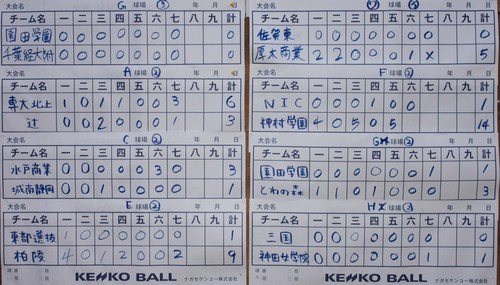 大会名 G 球場 ③ 年 月 日
チーム名 一 二 三 四 五 六 七 八 九 計
園田学園 0 0 0 0 0 0 0 0
千葉経大附 0 0 0 0 0 0 0 0
大会名 A 球場 ② 年 月 日
チーム名 一 二 三 四 五 六 七 八 九 計
専大北上 1 0 1 1 0 0 3 6
辻 0 0 2 0 0 0 1 3
大会名 C 球場 ② 年 月 日
チーム名 一 二 三 四 五 六 七 八 九 計
水戸商業 0 0 0 0 0 3 0 3
城南静岡 0 0 1 0 0 0 0 1
大会名 E 球場 ② 年 月 日
チーム名 一 二 三 四 五 六 七 八 九 計
東都選抜 1 0 0 0 0 0 0 1
柏陵 4 0 1 2 0 0 2 9
KENKO BALL ナガセケンコー株式会社
大会名 球場 ③ 年 月 日
チーム名 一 二 三 四 五 六 七 八 九 計
佐賀東 0 0 0 0 0 0 0 0
厚木商業 2 2 0 0 0 1 x 5
大会名 F 球場 ② 年 月 日
チーム名 一 二 三 四 五 六 七 八 九 計
NIC 0 0 1 0 0 1
神村学園 4 0 5 0 5 14
大会名 G 球場 ② 年 月 日
チーム名 一 二 三 四 五 六 七 八 九 計
園田学園 0 0 0 0 0 0 1 1
とわの森 1 1 0 1 0 0 0 3
大会名 H 球場 ③ 年 月 日
チーム名 一 二 三 四 五 六 七 八 九 計
三国 0 0 0 0 0 0 0 0
神田女学院 0 0 0 0 0 0 1 1
KENKO BALL ナガセケンコー株式会社